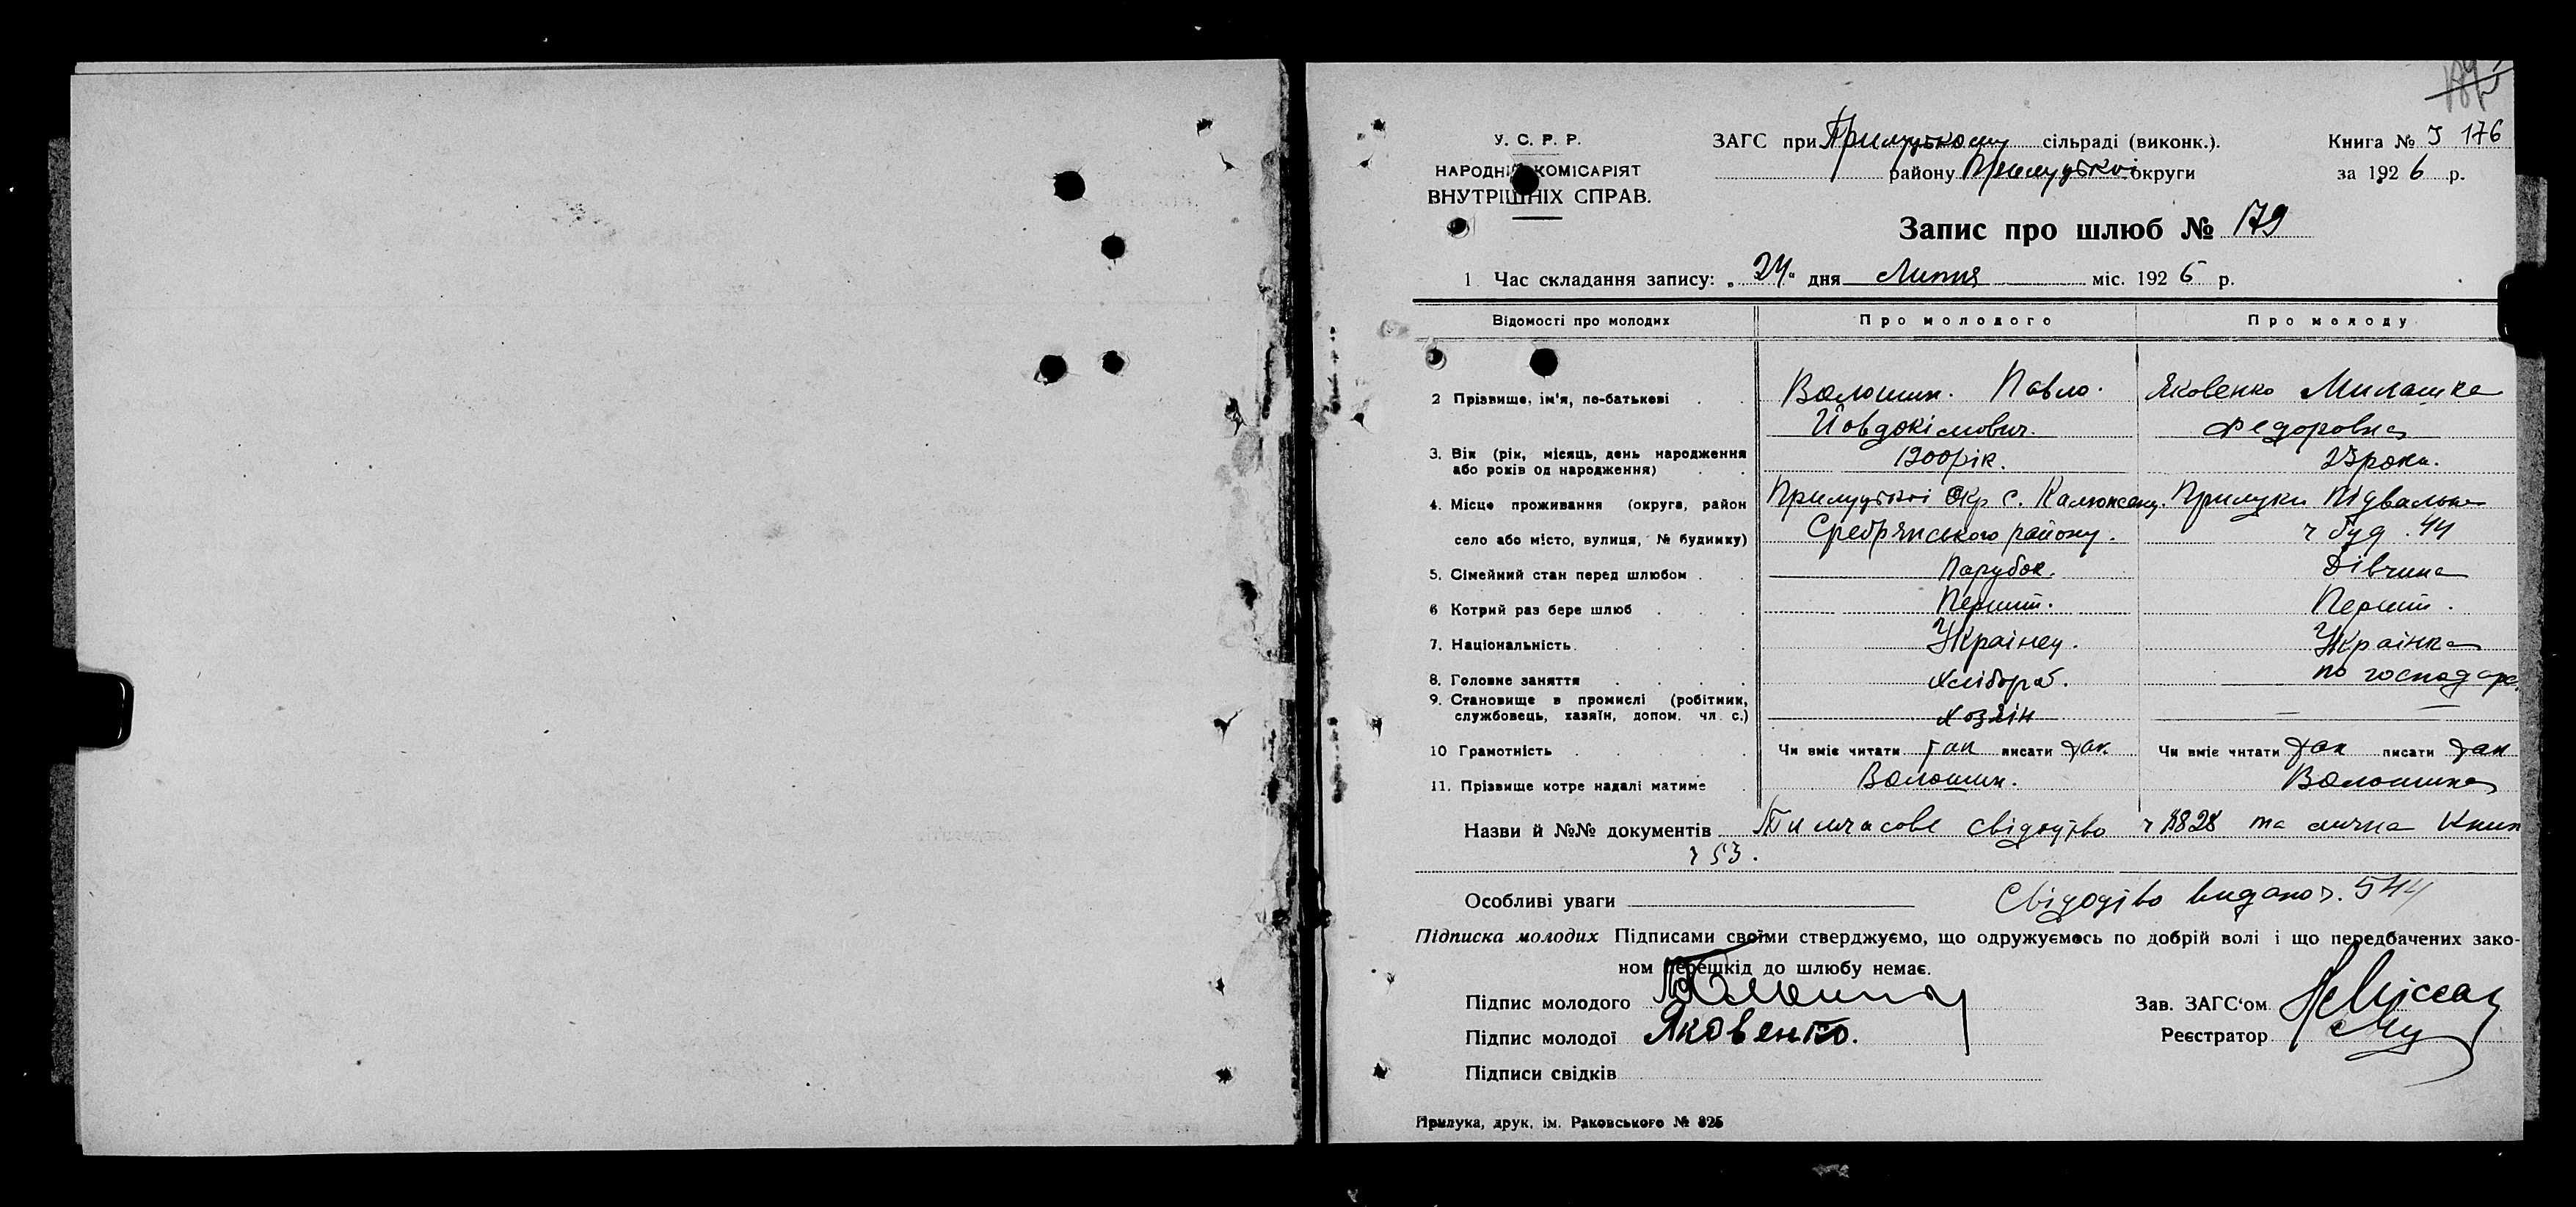 У. С. Р. Р.
НАРОДНІЙ КОМІСАРІЯТ
ВНУТРІШНІХ СПРАВ.
ЗАГС при Прилуцькому сільраді (виконк.).
району Прилуцької округи
Книга № 3 176
за 1926 р.
Запис про шлюб № 179
1 Час складання запису: „24“ дня Липня міс. 1926 р.
Відомості про молодих Про молодого Про молоду
2 Прізвище, ім'я, по-батькові Волошин. Павло. Яковенко Милашка
Йовдокімович. Федоровна
3. Вік (рік, місяць, день народження
або років од народження) 1900 рік. 23 роки.
4. Місце проживання (округа, район Прилуцької Окр с. Прилуки Підвальна
село або місто, вулиця, № будинку) Сребрянського району. ч буд. 44
5. Сімейний стан перед шлюбом Парубок. Дівчина
6 Котрий раз бере шлюб Перший. Перший.
7. Національність Українец. Українка
8. Головне заняття Хлібороб. по господарс.
9. Становище в промислі (робітник,
службовець, хазяїн, допом. чл. с.) Хозяін — —
10 Грамотність Чи вміє читати так писати так. Чи вміє читати так писати так
11. Прізвище котре надалі матиме Волошин. Волошина
Назви й №№ документів Тимчасове свідоцтво ч 1828 та Книж
ч 53.
Особливі уваги Свідоцтво видано ч. 544
Підписка молодих Підписами своїми стверджуємо, що одружуємось по добрій волі і що передбачених зако-
ном перешкід до шлюбу немає.
Підпис молодого
Зав. ЗАГС‘ом
Підпис молодої Яковенко.
Реєстратор
Підписи свідків
Прилука, друк. ім. Раковського № 825